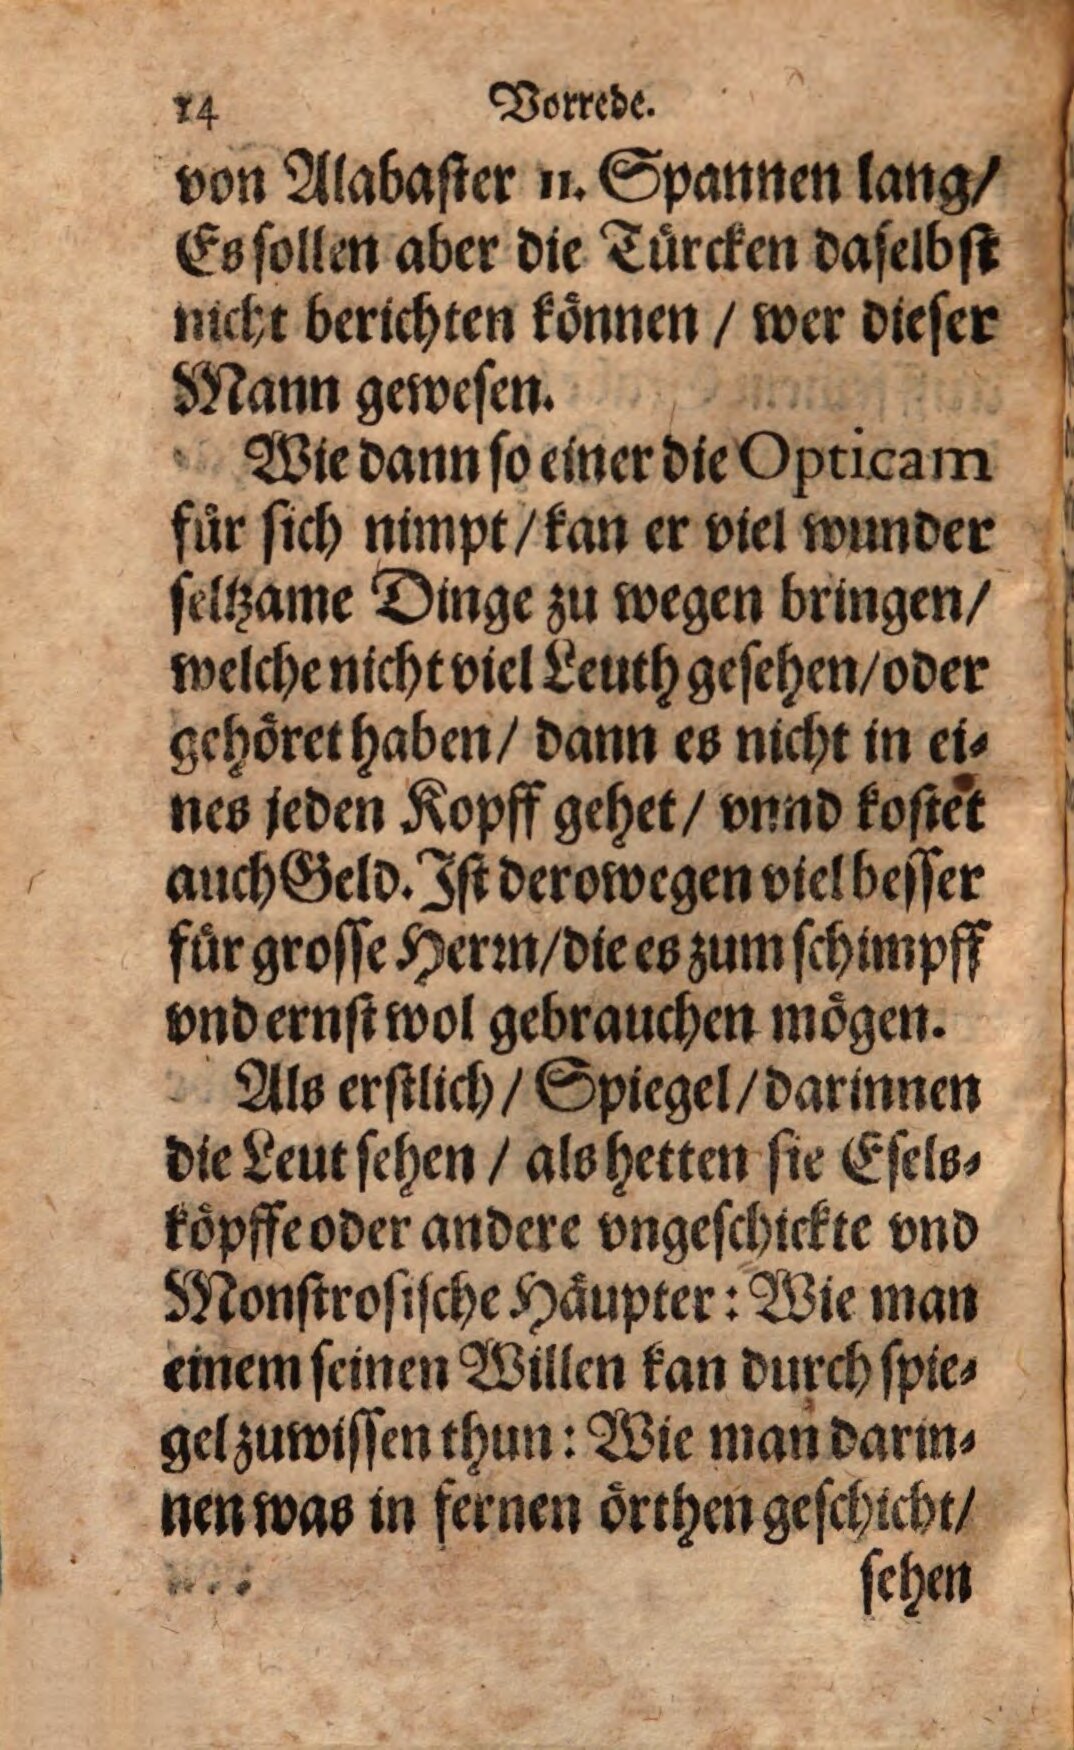 14 Vorrede.
von Alabaſter 11. Spannen lang/
Es ſollen aber die Tuͤrcken daſelbſt
nicht berichten koͤnnen / wer dieſer
Mann geweſen.
Wie dann ſo einer die Opticam
fuͤr ſich nimpt / kan er viel wunder
ſeltzame Dinge zu wegen bringen/
welche nicht viel Leuth geſehen/oder
gehoͤret haben/ dann es nicht in ei⸗
nes jeden Kopff gehet/ vnnd koſtet
auch Geld. Iſt derowegen viel beſſer
fuͤr groſſe Herꝛn/die es zum ſchimpff
vnd ernſt wol gebrauchen moͤgen.
Als erſtlich/ Spiegel/darinnen
die Leut ſehen / als hetten ſie Eſels⸗
koͤpffe oder andere vngeſchickte vnd
Monſtroſiſche Haͤupter: Wie man
einem ſeinen Willen kan durch ſpie⸗
gel zuwiſſen thun: Wie man darin⸗
nen was in fernen oͤrthen geſchicht/
ſehen